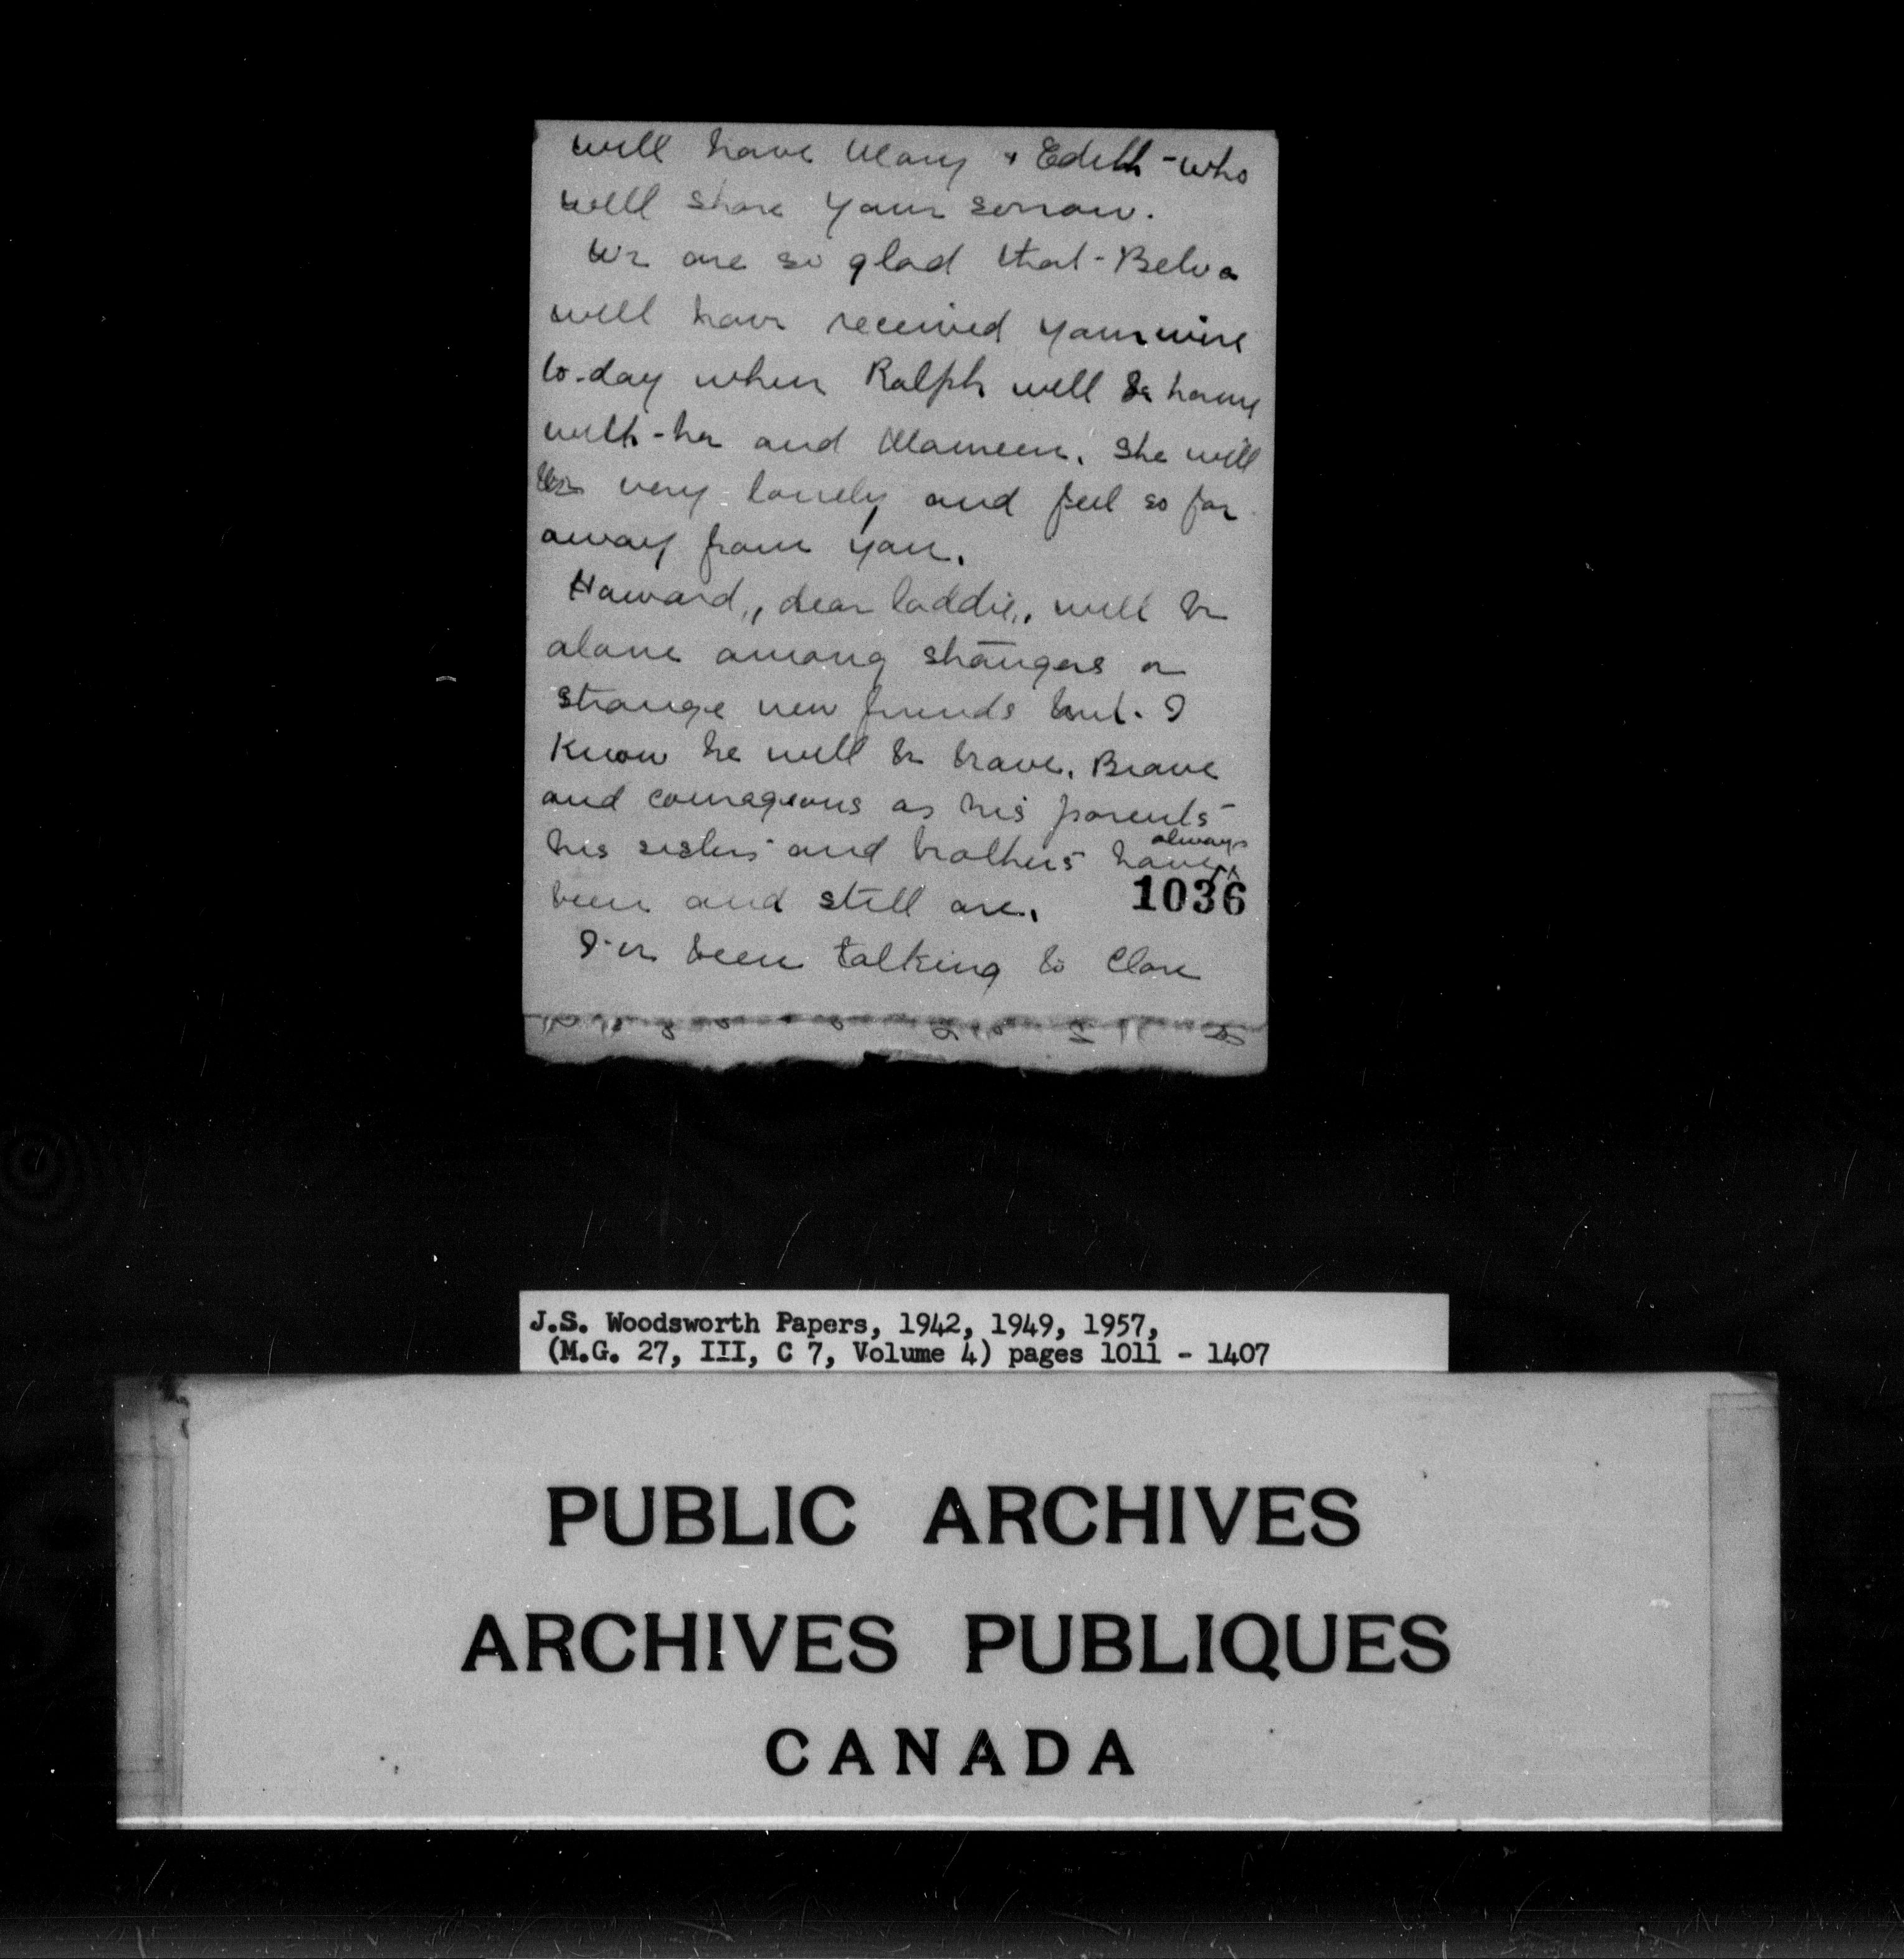 will have Mary & Edith - who
will share your sorrow.
We are so glad that - Belva
will have received your wire
to-day when Ralph will be home
with - her and Maureen. She will
be very lonely and feel so far
away from you.
Howard, dear laddie, will be
alone among strangers or
strange new friends but - I
know he will be brave. Brave
and courageous as his parents -
his sisters and brothers have always
been and still are.
1036
I've been talking to Clare
J.S. Woodsworth Papers, 1942, 1949, 1957,
(M.G. 27, III, C 7, Volume 4) pages 1011 - 1407
PUBLIC ARCHIVES
ARCHIVES PUBLIQUES
CANADA